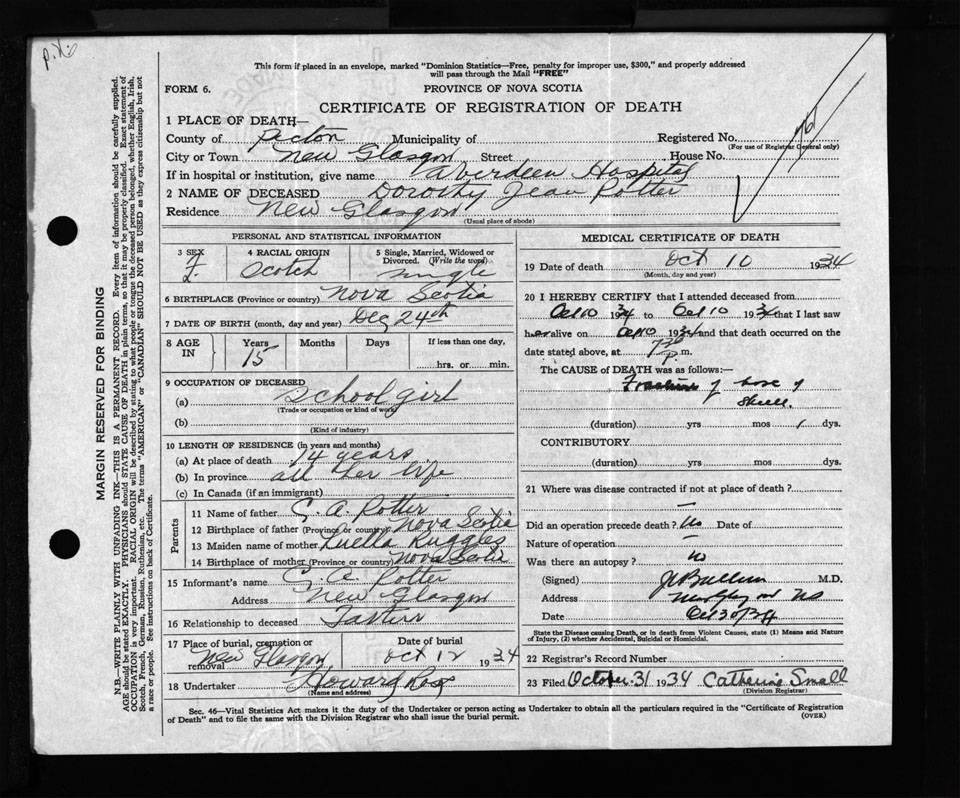 This form if placed in an envelope, marked "Dominion Statistics—Free, penalty for improper use, $300," and properly addressed
will pass through the Mail "FREE"
FORM 6.
PROVINCE OF NOVA SCOTIA
CERTIFICATE OF REGISTRATION OF DEATH
1 PLACE OF DEATH—
County of Pictou Municipality of Registered No.
(For use of Registrar General only)
City or Town New Glasgow Street House No.
If in hospital or institution, give name Aberdeen Hospital
2 NAME OF DECEASED Dorothy Jean Potter
Residence New Glasgow
(Usual place of abode)
PERSONAL AND STATISTICAL INFORMATION
3 SEX 4 RACIAL ORIGIN 5 Single, Married, Widowed or Divorced. (Write the word)
F. Scotch single
6 BIRTHPLACE (Province or country) Nova Scotia
7 DATE OF BIRTH (month, day and year) Dec 24th
8 AGE IN Years Months Days If less than one day,
15 hrs. or min.
9 OCCUPATION OF DECEASED
(a) School girl
(Trade or occupation or kind of work)
(b)
(Kind of industry)
10 LENGTH OF RESIDENCE (in years and months)
(a) At place of death 14 years
(b) In province all her life
(c) In Canada (if an immigrant)
Parents
11 Name of father G. A. Potter
12 Birthplace of father (Province or country) Nova Scotia
13 Maiden name of mother Luella Ruggles
14 Birthplace of mother (Province or country) Nova Scotia
15 Informant's name G. A. Potter
Address New Glasgow
16 Relationship to deceased Father
17 Place of burial, cremation or removal Date of burial
New Glasgow Oct 12 1934
18 Undertaker Howard Rose
(Name and address)
MEDICAL CERTIFICATE OF DEATH
19 Date of death Oct 10 1934
(Month, day and year)
20 I HEREBY CERTIFY that I attended deceased from
Oct 10 1934 to Oct 10 1934 that I last saw
her alive on Oct 10 1934 and that death occurred on
date stated above, at p m.
The CAUSE of DEATH was as follows:—
Fracture of base of
skull.
(duration) yrs mos 1 dys.
CONTRIBUTORY
(duration) yrs. mos. dys.
21 Where was disease contracted if not at place of death?
—
Did an operation precede death? No Date of
Nature of operation —
Was there an autopsy? No
(Signed) M.D.
Address NS
Date Oct 30/34
State the Disease causing Death, or in death from Violent Causes, state (1) Means and Nature
of Injury, (2) whether Accidental, Suicidal or Homicidal.
22 Registrar's Record Number
23 Filed October 31 1934 Catherine Small
(Division Registrar)
Sec. 46—Vital Statistics Act makes it the duty of the Undertaker or person acting as Undertaker to obtain all the particulars required in the "Certificate of Registration
of Death" and to file the same with the Division Registrar who shall issue the burial permit.
(OVER)
MARGIN RESERVED FOR BINDING
N.B.—WRITE PLAINLY WITH UNFADING INK—THIS IS A PERMANENT RECORD. Every item of information should be carefully supplied.
AGE should be stated EXACTLY. PHYSICIANS should STATE CAUSE OF DEATH in plain terms, so that it may be properly classified. Exact statement of
OCCUPATION is very important. RACIAL ORIGIN will be described by stating to what people or tongue the deceased person belonged, whether English, Irish,
Scotch, French, German, Russian, Ruthenian, etc. The terms "AMERICAN" or "CANADIAN" SHOULD NOT BE USED as they express citizenship but not
a race or people. See instructions on back of Certificate.